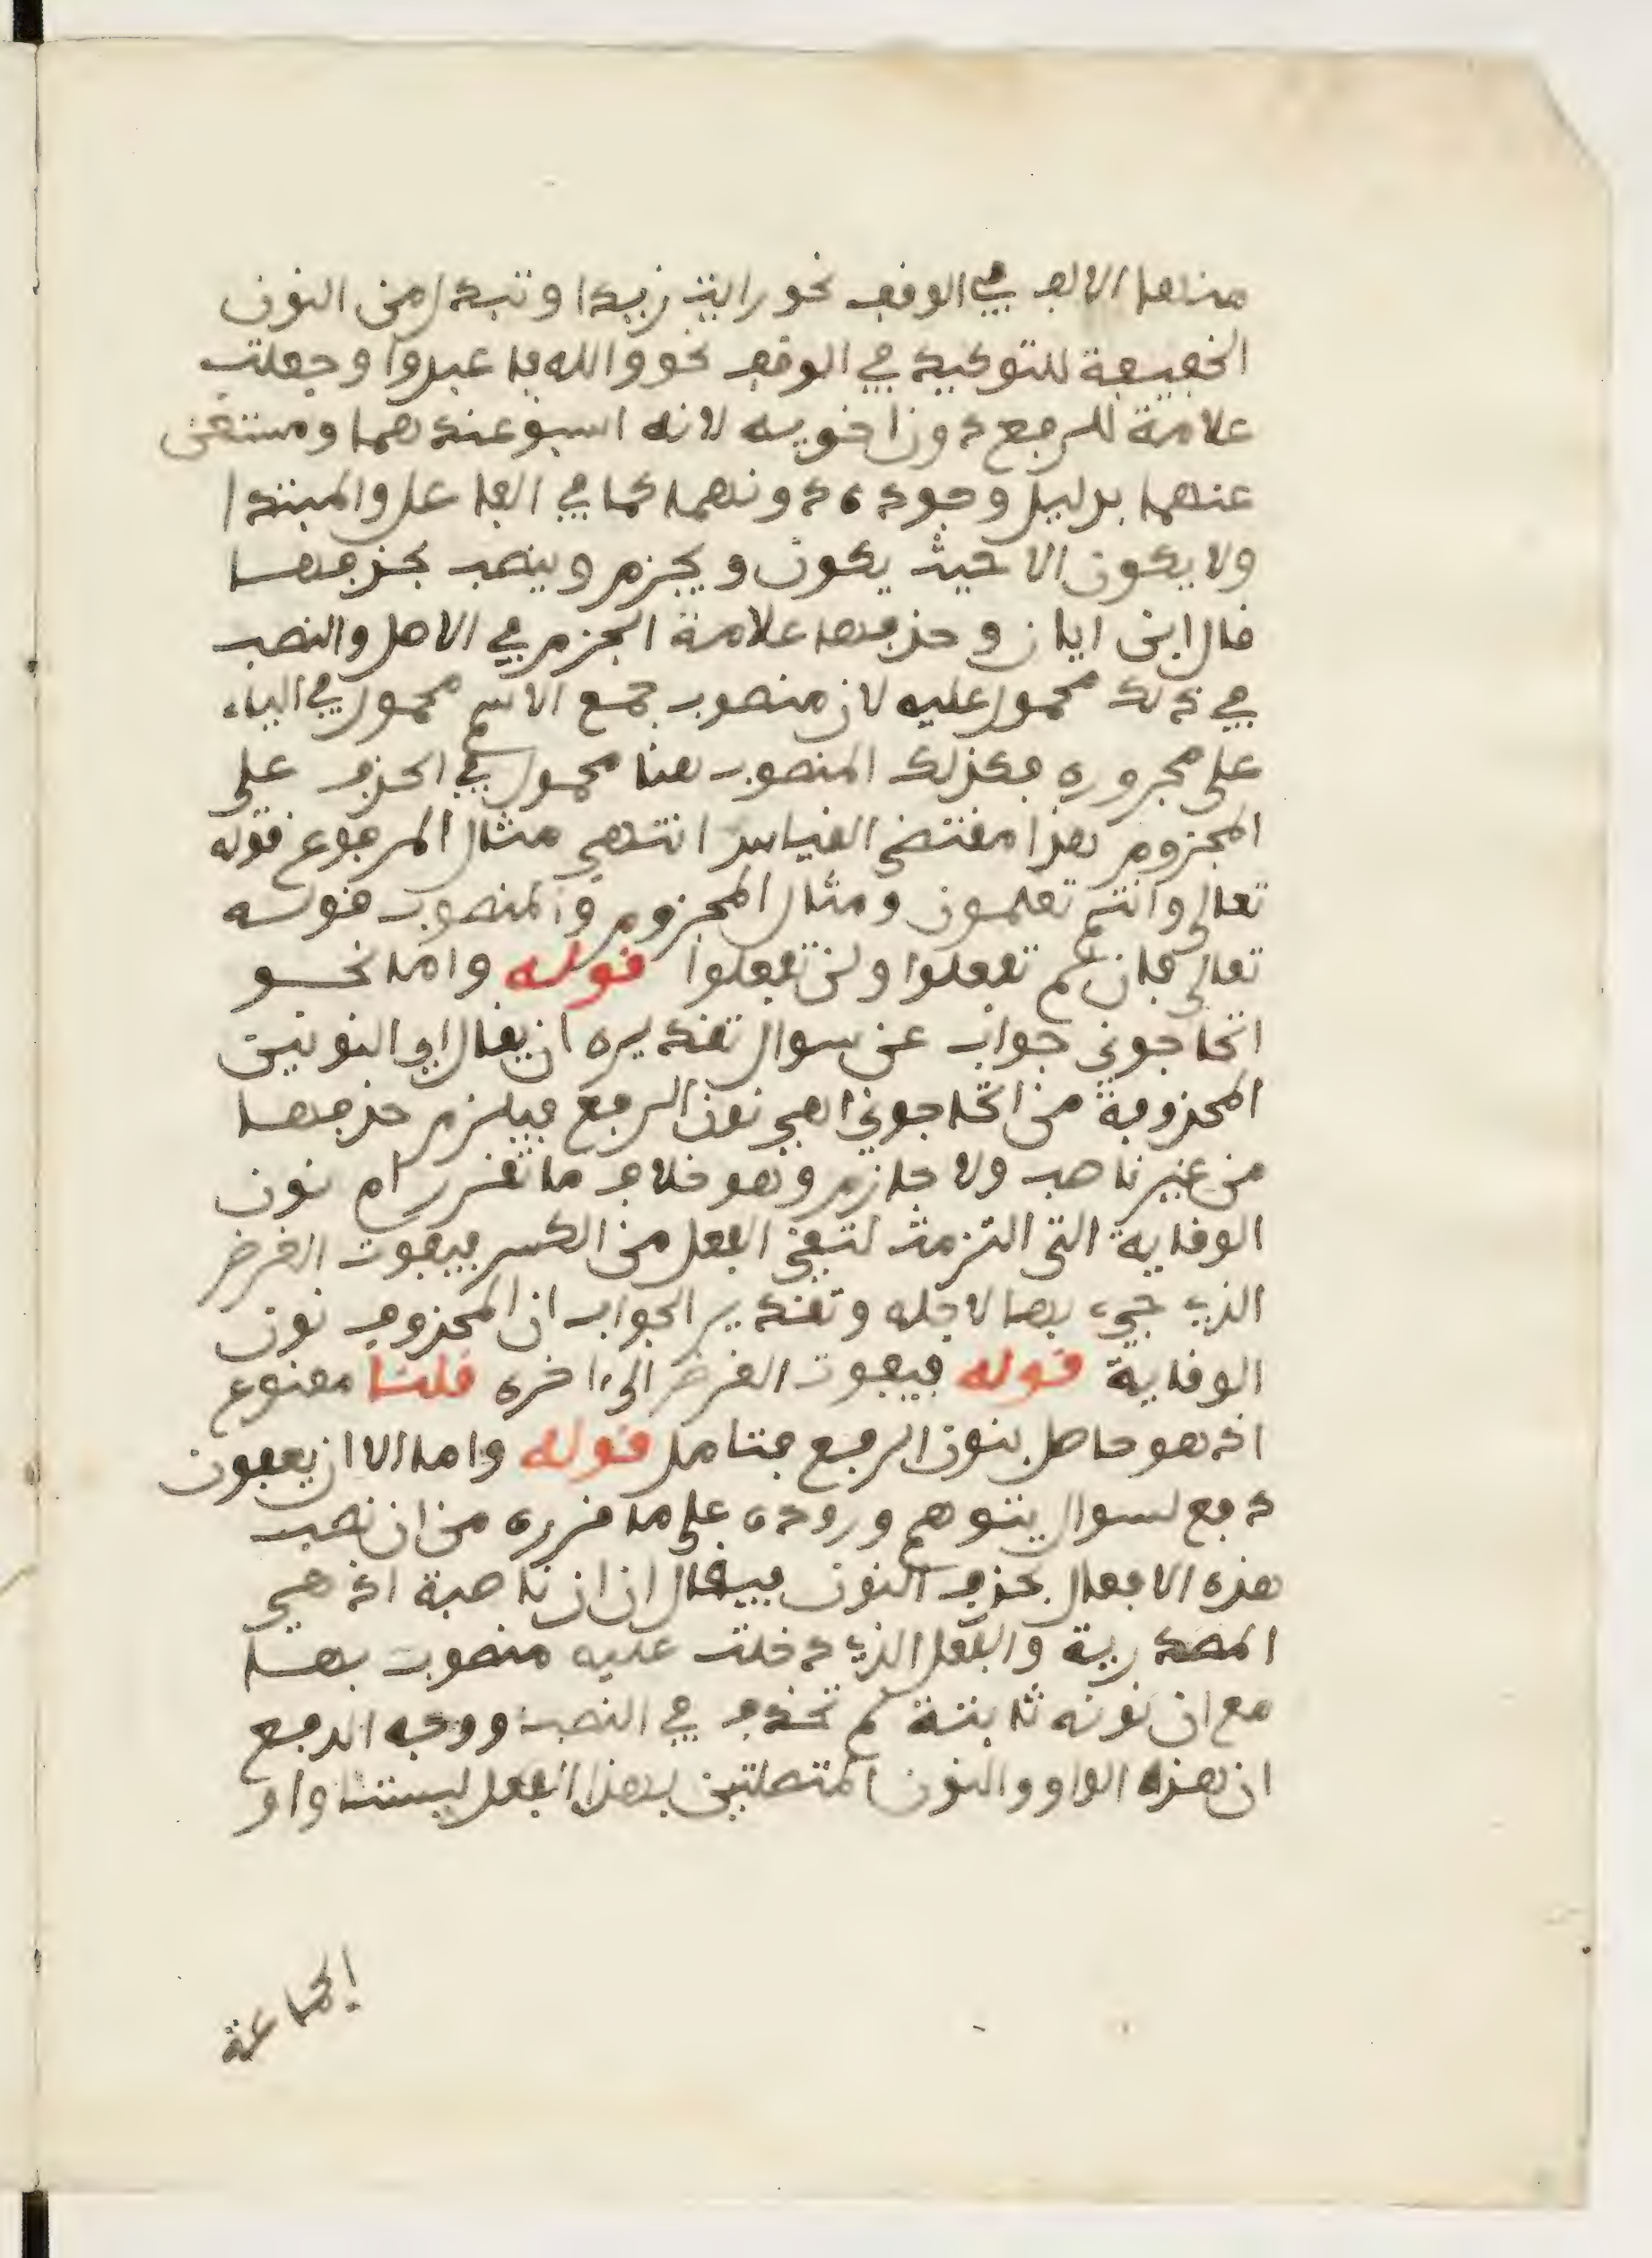 منها الالف في الوقف نحو رايت زيدا وتبدل من النون
الخفيفة للتوكيد في الوقف نحو والله فاعبدوا وجعلت
علامة للرفع دون اخويه لانه اسبق عندهما ومستغن
عنهما بدليل وجوده دونهما كما في الفاعل والمبتدا
ولا يكون الا حيث يكون ويجزم وينصب بحذفها
قال ابن اياز وحذفها علامة الجزم في الاصل والنصب
في ذلك محمول عليه لان منصوب جمع الاسم محمول في الياء
على مجروره فكذلك المنصوب هنا محمول في الحذف على
المجزوم هذا مقتضى القياس انتهى مثال المرفوع قوله
تعالى وانتم تعلمون ومثال المجزوم والمنصوب قوله
تعالى فان لم تفعلوا ولن تفعلوا قوله واما نحو
اتحاجوني جواب عن سوال تقديره ان يقال اي النونين
المحذوفة من اتحاجوني اهي نون الرفع فيلزم حذفها
من غير ناصب ولا جازم وهو خلاف ما تقرر ام نون
الوقاية التي التزمت لتقي الفعل من الكسر فيفوت الغرض
الذي جيء بها لاجله وتقدير الجواب ان المحذوف نون
الوقاية قوله فيفوت الغرض الى ءاخره قلنا ممنوع
اذ هو حاصل بنون الرفع فتامل قوله واما الا ان يعفون
دفع لسوال يتوهم وروده على ما قرره من ان نصب
هذه الافعال بحذف النون فيقال ان ان ناصبة اذ هي
المصدرية والفعل الذي دخلت عليه منصوب بها
مع ان نونه ثابتة لم تحذف في النصب ووجه الدفع
ان هذه الواو والنون المتصلتين بهذا الفعل ليستا واو
الجماعة